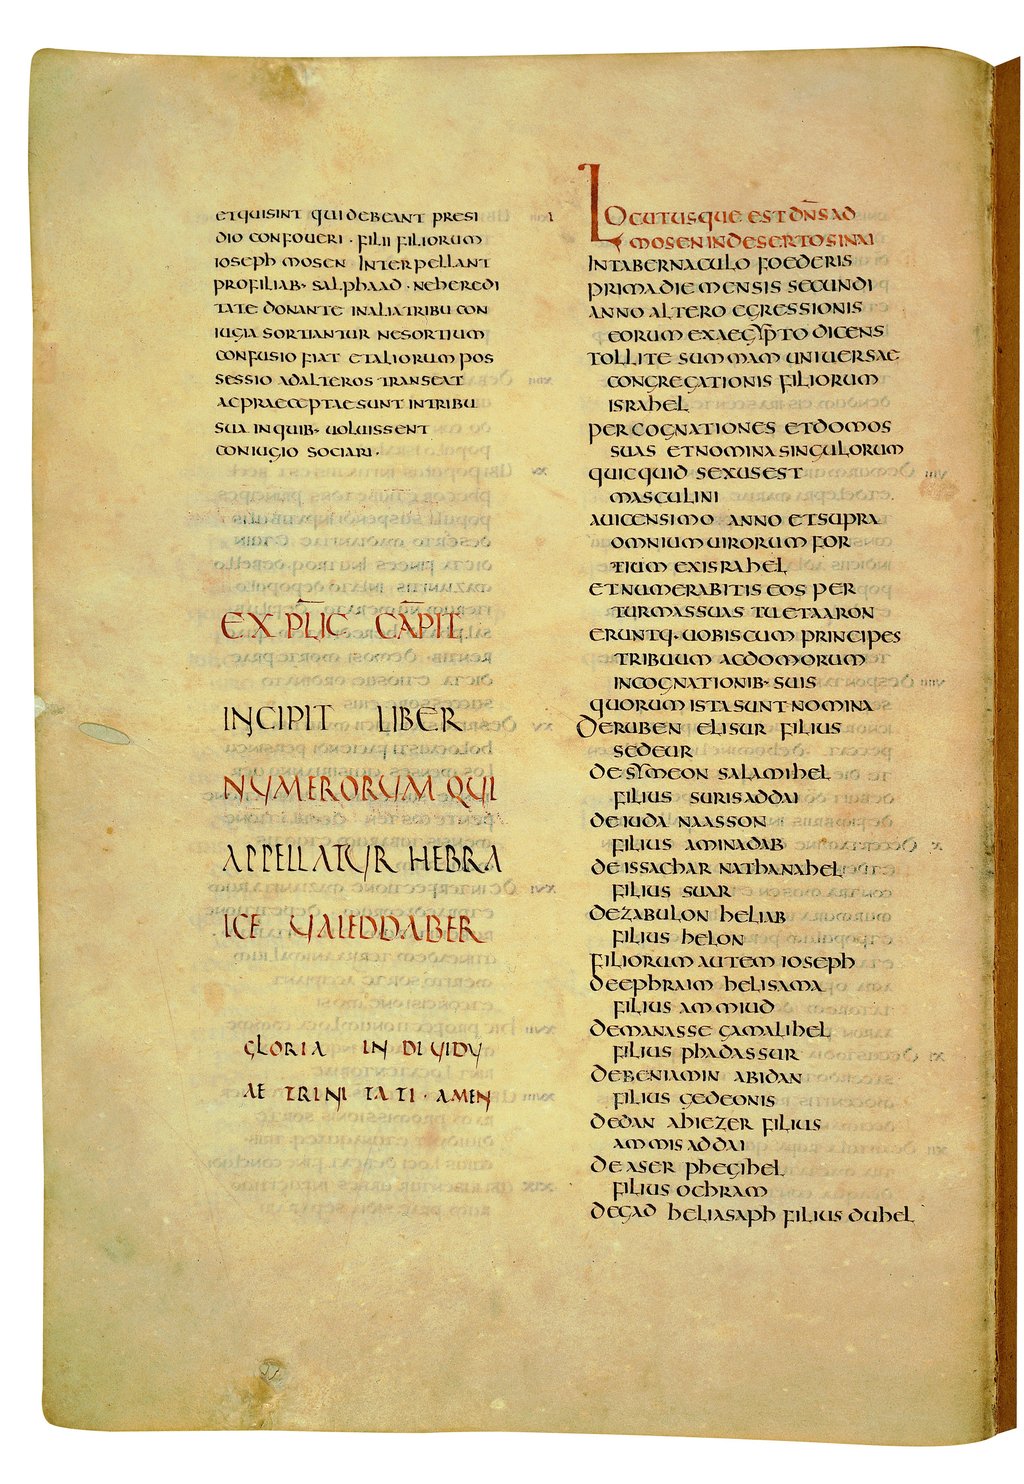 etquisint qui debeant presi
dio confoueri · filii filiorum
ioseph mosen interpellant
profiliab· salphaad · neheredi
tate donante inalia tribu con
iugia sortiantur nesortium
confusio fiat etaliorum pos
sessio adalteros transeat
acpraeceptae sunt intribu
sua inquib· uoluissent
coniugio sociari ·
EXPLIC̅ CAP̅IT̅
INCIPIT LIBER
NUMERORUM QUI
APPELLATUR HEBRA
ICE UAIEDDABER
GLORIA INDIUIDU
AE TRINITATI · AMEN
I
Locutusque est dn̅s ad
mosen indeserto sinai
intabernaculo foederis
prima die mensis secundi
anno altero egressionis
eorum exaegypto dicens
tollite summam uniuersae
congregationis filiorum
israhel
per cognationes etdomos
suas etnomina singulorum
quicquid sexus est
masculini
auicensimo anno etsupra
omnium uirorum for
tium exisrahel
etnumerabitis eos per
turmas suas tu etaaron
eruntq· uobiscum principes
tribuum acdomorum
incognationib· suis
quorum ista sunt nomina
deruben elisur filius
sedeur
desymeon salamihel
filius surisaddai
deiuda naasson
filius aminadab
deissachar nathanahel
filius suar
dezabulon heliab
filius helon
filiorum autem ioseph
deephraim helisama
filius ammiud
demanasse gamalihel
filius phadassur
debeniamin abidan
filius gedeonis
dedan ahiezer filius
ammisaddai
deaser phegihel
filius ochram
degad heliasaph filius duhel